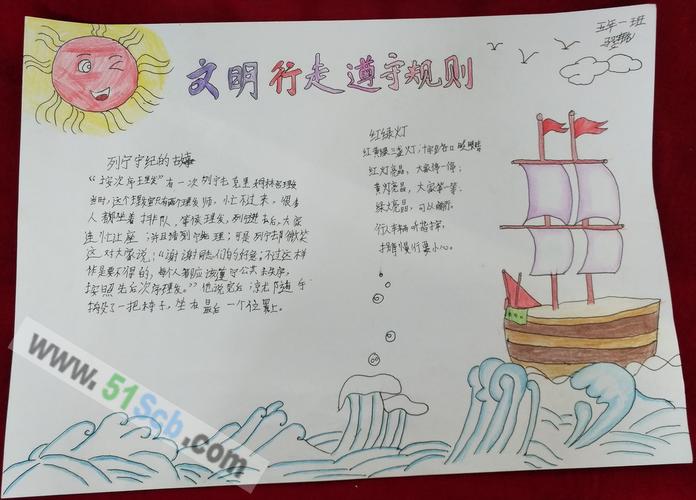 五年一班
文明行走遵守规则
列宁守纪的故事
“按次序理发”有一次列宁去克里姆林宫理发
当时,这个理发室只有两个理发师,忙不过来,很多
人都坐着排队,等候理发,列宁进去后,大家
连忙让座,并且请列宁先理;可是列宁却微笑
这对大家说:“谢谢同志们的好意;不过这样
作是要不得的,每个人都应该遵守公共秩序,
按照先后次序理发。”他说完后,就随手
搬了一把椅子,坐在最后一个位置上。
红绿灯
红黄绿三盏灯,
红灯亮晶,大家停一停;
黄灯亮晶,大家等一等;
绿灯亮晶,可以
行人车辆
慢行要小心。
www.51Scb.com